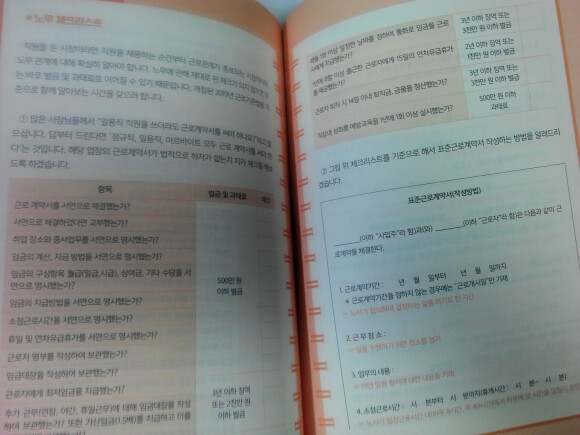 노무 체크리스트
직원을 둔 사장이라면 직원을 채용하는 순간부터 근로관계가 종료되는 시점까지
노무 관계에 대해 확실히 알아야 합니다. 노무에 관해 제대로 된 체크가 되지 않으면
는 바로 벌금 및 과태료로 이어질 수 있기 때문입니다. 개정된 2019년 근로기준법을
준으로 함께 알아보는 시간을 갖으려 합니다.
① 많은 사장님들께서 "일용직 직원을 쓰더라도 근로계약서를 써야 하나요?"라고
으십니다. 답부터 드린다면 "정규직, 일용직, 아르바이트 모두 근로 계약서를 써야
다"는 것입니다. 해당 업장의 근로계약서가 법적으로 하자가 없는지 자가 체크를 해
도록 하겠습니다.
항목 벌금 및 과태료 체크
근로 계약서를 서면으로 체결했는가?
서면으로 체결하였다면 교부했는가?
취업 장소와 종사업무를 서면으로 명시했는가?
임금의 계산, 지급 방법을 서면으로 명시했는가?
임금의 구성항목 월급(일급,시급), 상여금, 기타 수당을 서
면으로 명시했는가?
500만 원
이하 벌금
임금의 지급방법을 서면으로 명시했는가?
소정근로시간을 서면으로 명시했는가?
휴일 및 연차유급휴가를 서면으로 명시했는가?
근로자 명부를 작성하여 보관했는가?
임금대장을 작성하여 보관했는가?
근로자에게 최저임금을 지급했는가?
추가 근무(연장, 야간, 휴일근무)에 대해 임금대장을 작성
하여 보관했는가? 또한 가산임금(1.5배)를 지급하고 이를
3년 이하 징역
또는 2천만 원
이하 벌금
매월 1회 이상 일정한 날짜를 정하여 통화로 임금을 근로
자에게 지급했는가?
3년 이하 징역 또는
3천만 원 이하 벌금
1년에 8할 이상 출근한 근로자에게 15일의 연차유급휴가
를 제공했는가?
2년 이하 징역 또는
1천만 원 이하 벌금
근로자 퇴직 시 14일 이내 퇴직금, 금품을 정산했는가?
3년 이하 징역 또는
3천만 원 이하 벌금
직장내 성희롱 예방교육을 1년에 1회 이상 실시했는가?
500만 원 이하
과태료
② 그럼 위 체크리스트를 기준으로 해서 표준근로계약서 작성하는 방법을 알려드리
겠습니다.
표준근로계약서(작성방법)
(이하 "사업주"라 함)과(와) (이하 "근로자"라 함)은 다음과 같이 근
로계약을 체결한다.
1. 근로계약기간 : 년 월 일부터 년 월 일까지
※ 근로계약기간을 정하지 않는 경우에는 "근로개시일"만 기재
☞ 노사가 협의하여 결정하는 일을 하기로 한 기간
2. 근 무 장 소 :
☞ 일을 수행하기 위한 장소를 명기
3. 업무의 내용 :
☞ 어떤 일을 할지에 대한 내용을 기재
4. 소정근로시간 : 시 분부터 시 분까지(휴게시간 : 시 분~ 시 분)